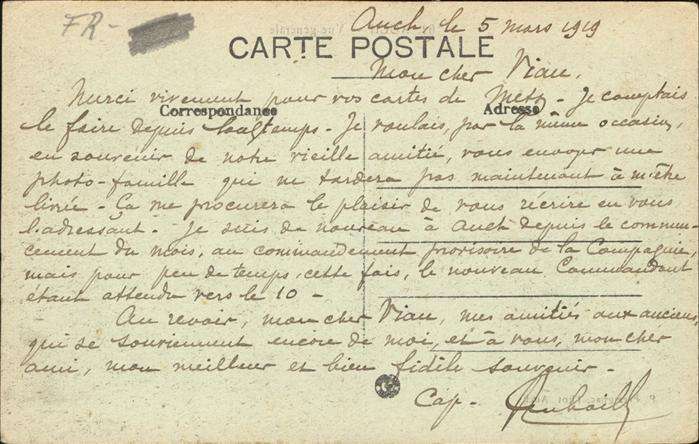 FR-
Auch, le 5 mars 1919
CARTE POSTALE
Mon cher Viau,
Merci vivement pour vos cartes de Metz - Je comptais
Correspondance
Adresse
le faire depuis longtemps - Je voulais, par la même occasion,
en souvenir de notre vieille amitié, vous envoyer une
photo-famille qui ne tardera pas maintenant à m'être
livrée - Ça me procurera le plaisir de vous récrire en vous
l'adressant. Je suis de nouveau à Auch depuis le commen-
cement du mois, au commandement provisoire de la Compagnie,
mais pour peu de temps, cette fois, le nouveau Commandant
étant attendu vers le 10 -
Au revoir, mon cher Viau, mes amitiés aux anciens
qui se souviennent encore de moi, et à vous, mon cher
ami, mon meilleur et bien fidèle souvenir -
Cap -